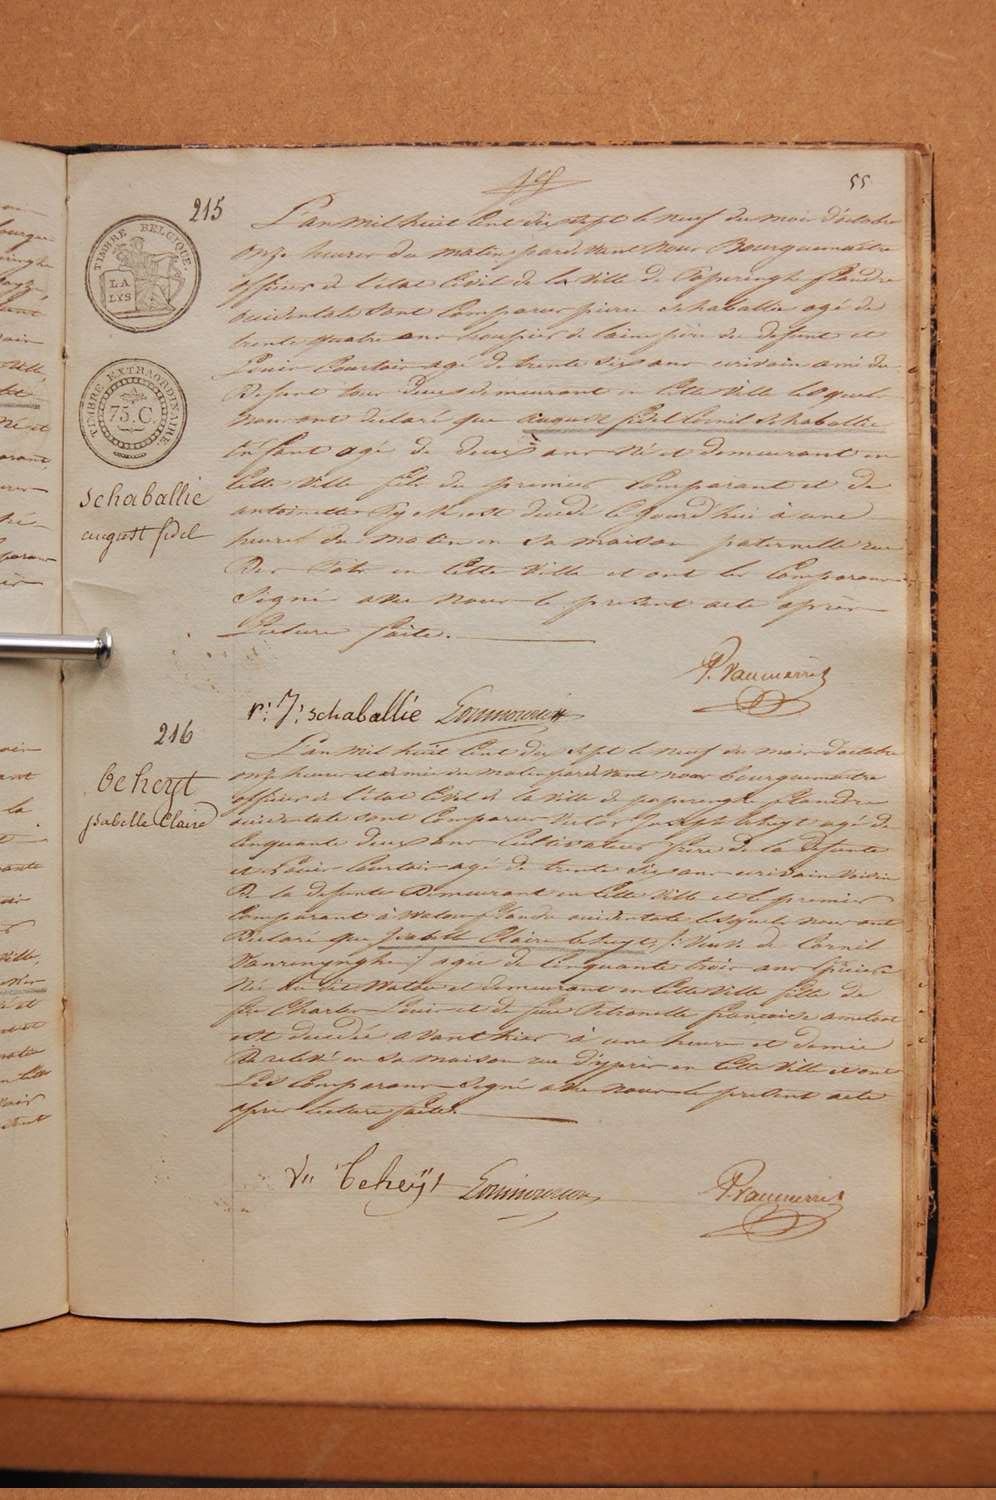 55
215
L'an mil huit cent dix sept le neuf du mois d'octobre
onze heures du matin pardevant nous Bourguemaitre
officier de l'état Civil de la Ville de Poperinghe flandre
occidentale sont Comparus pierre schaballie agé de
trente quatre ans de laine père du defunt et
Louis Courtois agé de trente six ans ecrivain ami du
Defunt tous deux demeurant en cette Ville lesquels
nous ont declaré que august fidel Cornil Schaballie
Enfant agé de deux ans Né et demeurant en
Cette Ville fils du premier Comparant et de
antoinette est decedé ce jourd'hui à une
heures du matin en sa maison paternelle rue
Des en Cette Ville et ont les Comparans
Signé avec nous le present acte après
Lecture faite.
TIMBRE BELGIQUE.
LA
LYS
TIMBRE EXTRAORDINAIRE.
75. C.
schaballie
august fidel
schaballie
216
beheyt
isabelle Claire
L'an mil huit Cent dix sept le neuf du mois d'octobre
onze heures et demie du matin pardevant nous bourguemaitre
officier de l'état Civil de la Ville de poperinghe flandre
occidentale sont Comparus Joseph beheyt agé de
Cinquante deux ans Cultivateur frere de la defunte
et Louis Courtois agé de trente six ans ecrivain Voisin
De la defunte Demeurant en Cette Ville et le premier
Comparant à Watou flandre occidentale lesquels nous ont
Declaré que isabelle Claire beheyt /: Veuve de Cornil
Vanrenynghe :/ agée de Cinquante trois ans
Née au dit Watou et demeurant en Cette Ville fille de
feu Charles Louis et de feue Petronelle francoise
est decedée avant hier à une heure et demie
De relevé en sa maison rue d'ypres en Cette Ville et ont
Les Comparans Signé avec nous le present acte
apres lecture faite.
beheyt